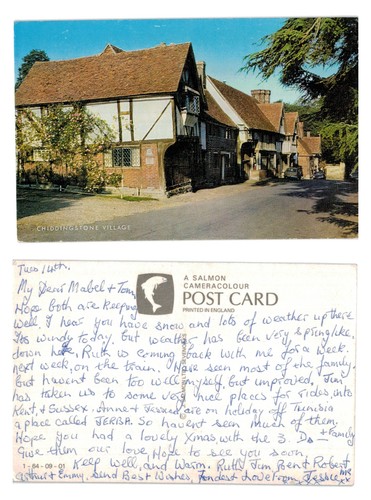 CHIDDINGSTONE VILLAGE
A SALMON
CAMERACOLOUR
POST CARD
PRINTED IN ENGLAND
Tues 14th.
My Dear Mabel & Tom,
Hope both are keeping
well, I hear you have snow and lots of weather up there
Its windy today, but weather has been very springlike,
down here, Ruth is coming back with me for a week.
next week, on the train, Have seen most of the family.
but havent been too well myself, but improved, Jim
has taken us to some very nice places for rides, into
Kent, & Sussex. Anne & are on holiday off Tunisia
a place called JERBA. So havent seen much of them.
Hope you had a lovely Xmas with the 3. Ds & Family
Give them our love, Hope to see you soon,
Keep well, and Warm. Ruth Jim Ben & Robert
1-64-09-01
Arthur & Emmy, Send Best Wishes, Fondest Love from Jessie xx